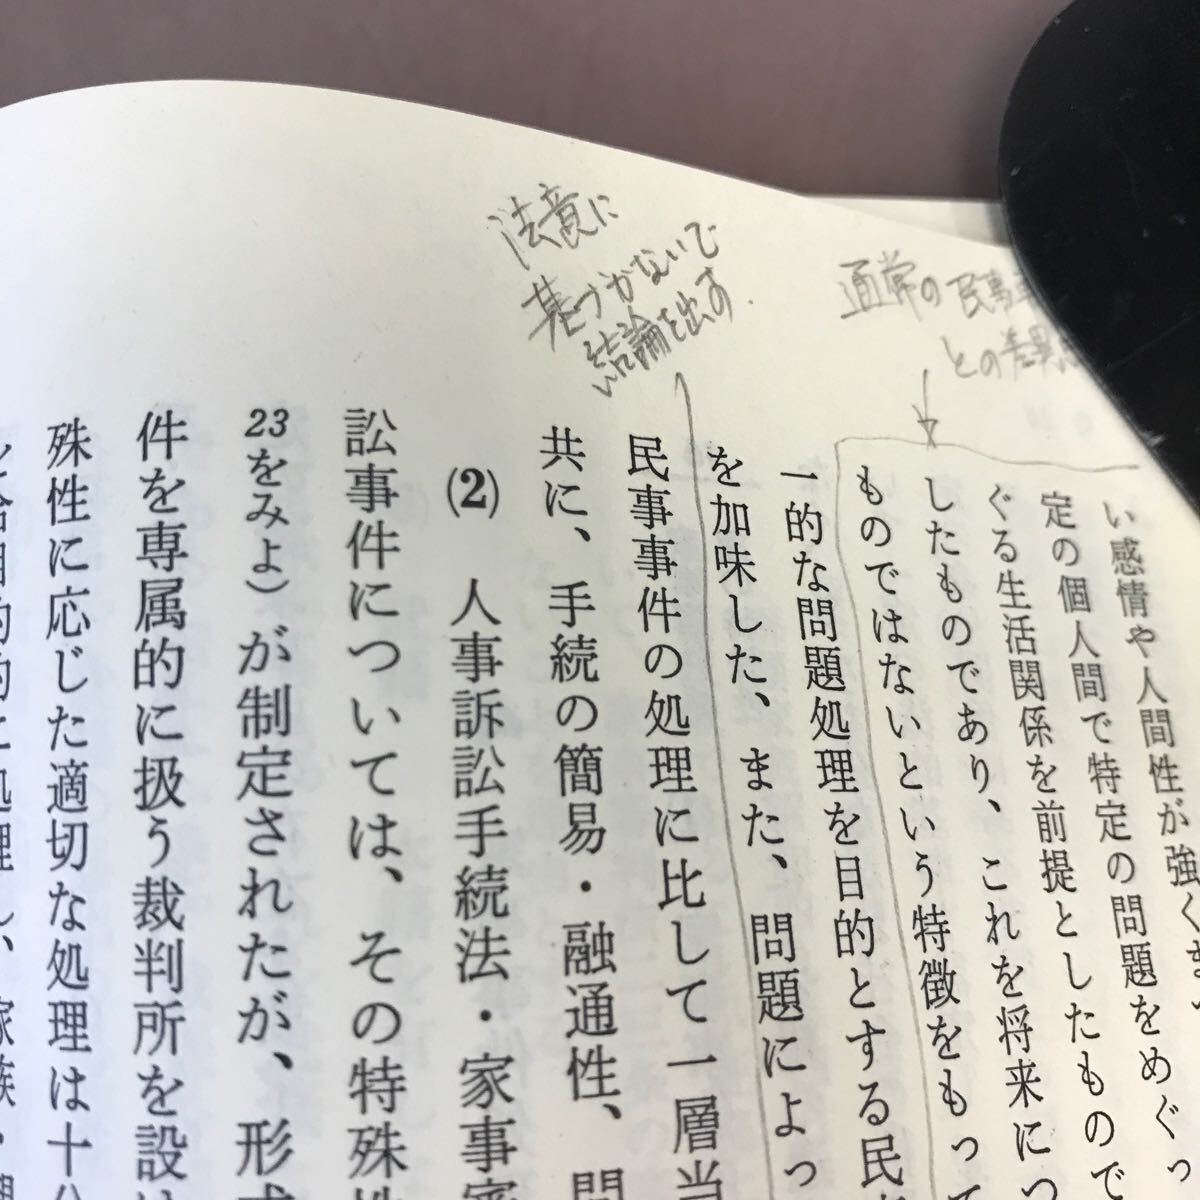 法意に
基づかないで
結論を出す.
通常の民事
との差異
い感情や人間性が強く
定の個人間で特定の問題をめぐっ
ぐる生活関係を前提としたもので
したものであり、これを将来につ
ものではないという特徴をもって
一的な問題処理を目的とする民
を加味した、また、問題によっ
民事事件の処理に比して一層当
共に、手続の簡易・融通性、問
(2) 人事訴訟手続法・家事審
訟事件については、その特殊性
23をみよ)が制定されたが、形式
件を専属的に扱う裁判所を設け
殊性に応じた適切な処理は十分